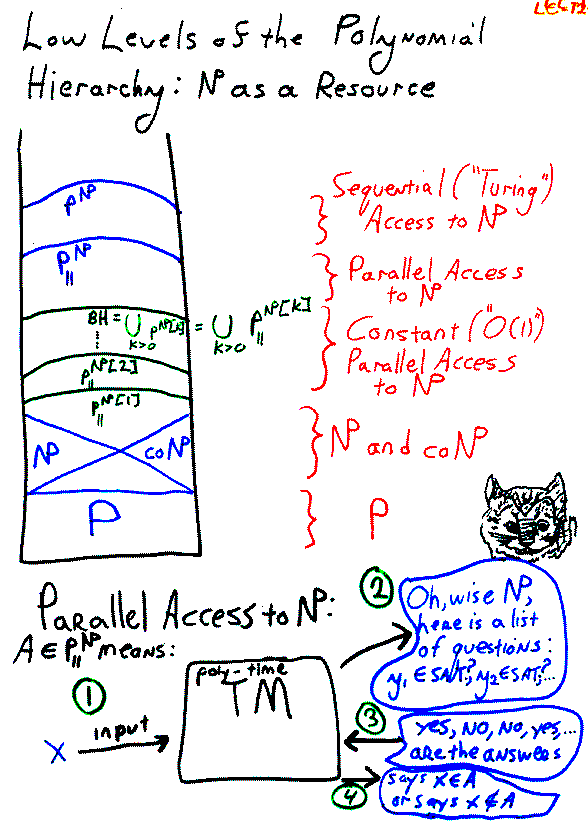 LECT2
Low Levels of the Polynomial
Hierarchy: NP as a Resource
P^NP
Sequential ("Turing")
Access to NP
P_||^NP
Parallel Access
to NP
BH = ⋃_{k>0} P^{NP[k]} = ⋃_{k>0} P_||^{NP[k]}
Constant ("O(1)")
Parallel Access
to NP
P_||^{NP[2]}
P_||^{NP[1]}
NP
coNP
NP and coNP
P
P
Parallel Access to NP:
A ∈ P_||^NP means:
1
input
X
poly-time
TM
2
Oh, wise NP,
here is a list
of questions:
y₁ ∈ SAT?, y₂ ∈ SAT?, ...
3
yes, NO, NO, yes, ...
are the answers
4
says X ∈ A
or says X ∉ A